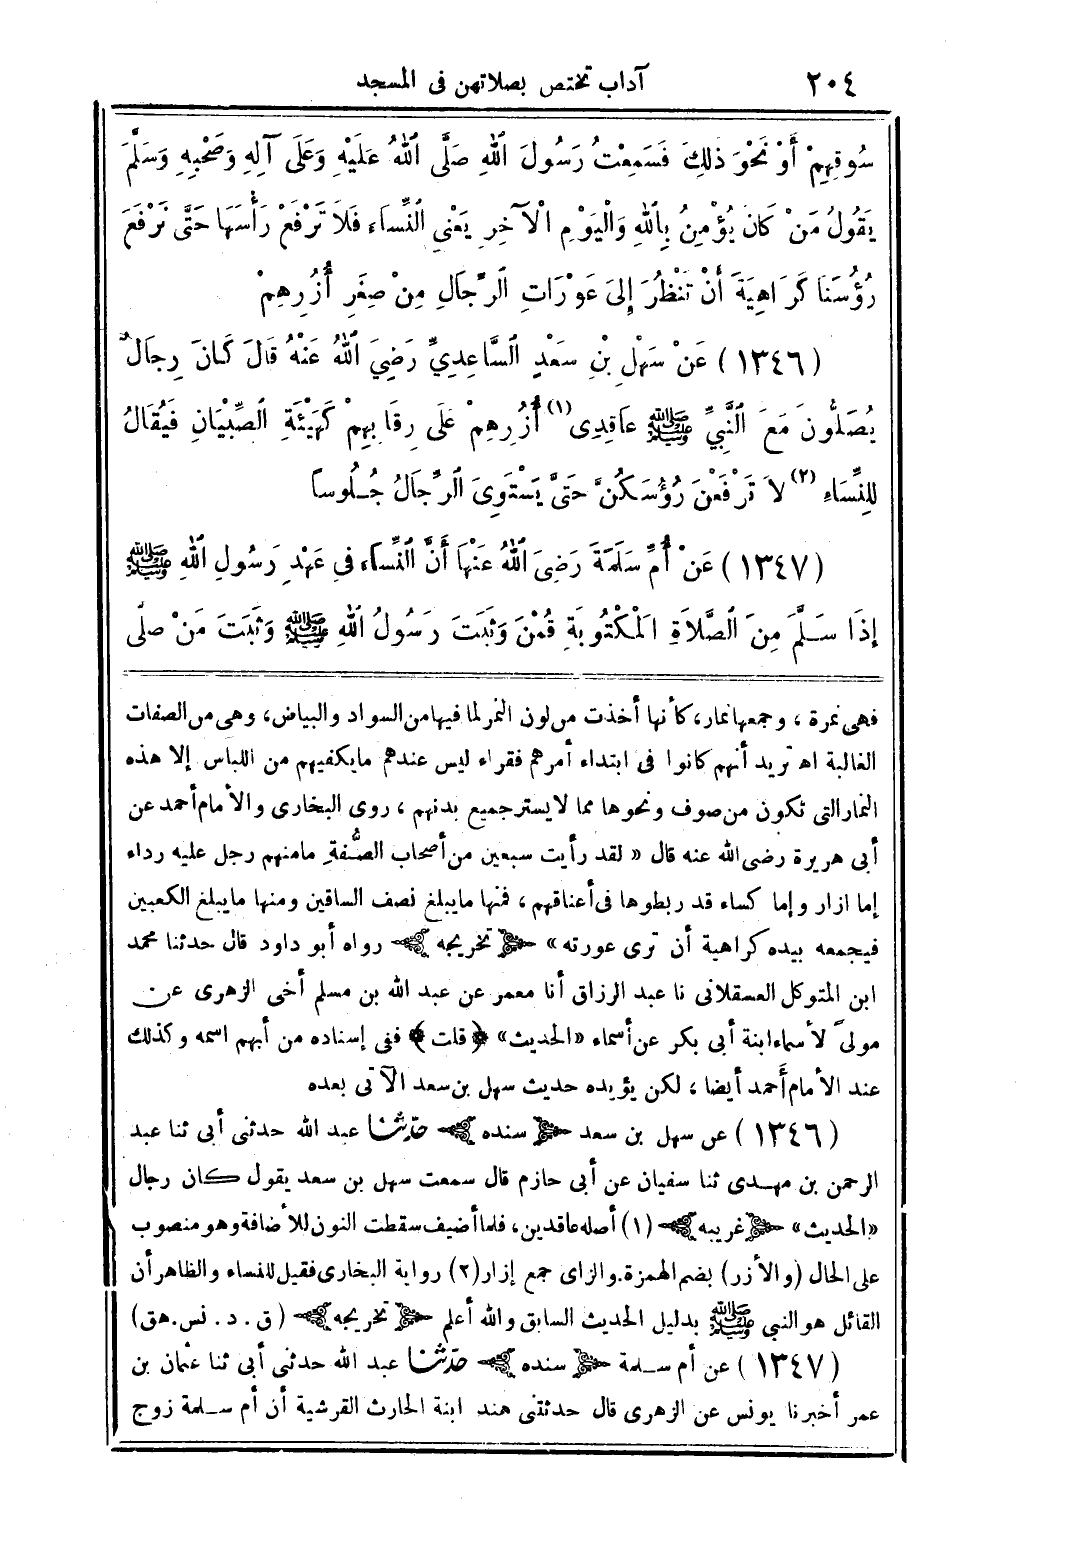 ٢٠٤ آداب تختص بصلاتهن فى المسجد
سُوقِهِمْ أَوْ نَحْوَ ذٰلِكَ فَسَمِعْتُ رَسُولَ اللهِ صَلَّى اللهُ عَلَيْهِ وَعَلَى آلِهِ وَصَحْبِهِ وَسَلَّمَ
يَقُولُ مَنْ كَانَ يُؤْمِنُ بِاللهِ وَالْيَوْمِ الْآخِرِ يَعْنِى النِّسَاءَ فَلَا تَرْفَعْ رَأْسَهَا حَتَّى نَرْفَعَ
رُؤُسَنَا كَرَاهِيَةَ أَنْ تَنْظُرَ إِلَى عَوْرَاتِ الرِّجَالِ مِنْ صِغَرِ أُزُرِهِمْ
(١٣٤٦) عَنْ سَهْلِ بْنِ سَعْدٍ السَّاعِدِيِّ رَضِيَ اللهُ عَنْهُ قَالَ كَانَ رِجَالٌ
يُصَلُّونَ مَعَ النَّبِيِّ ﷺ عَاقِدِى (١) أُزُرِهِمْ عَلَى رِقَابِهِمْ كَهَيْئَةِ الصِّبْيَانِ فَيُقَالُ
لِلنِّسَاءِ (٢) لَا تَرْفَعْنَ رُؤُسَكُنَّ حَتَّى يَسْتَوِىَ الرِّجَالُ جُلُوسًا
(١٣٤٧) عَنْ أُمِّ سَلَمَةَ رَضِىَ اللهُ عَنْهَا أَنَّ النِّسَاءَ فِى عَهْدِ رَسُولِ اللهِ ﷺ
إِذَا سَلَّمَ مِنَ الصَّلَاةِ الْمَكْتُوبَةِ قُمْنَ وَثَبَتَ رَسُولُ اللهِ ﷺ وَثَبَتَ مَنْ صلَّى
فهى نمرة ، وجمعها نمار، كأنها أخذت من لون النمر لما فيها من السواد والبياض، وهى من الصفات
الغالبة اه تريد أنهم كانوا فى ابتداء أمرهم فقراء ليس عندهم ما يكفيهم من اللباس إلا هذه
النمار التى تكون من صوف ونحوها مما لا يستر جميع بدنهم ، روى البخارى والأمام أحمد عن
أبى هريرة رضى الله عنه قال « لقد رأيت سبعين من أصحاب الصُّفةِ ما منهم رجل عليه رداء
إما ازار وإما كساء قد ربطوها فى أعناقهم ، فمنها ما يبلغ نصف الساقين ومنها ما يبلغ الكعبين
فيجمعه بيده كراهية أن ترى عورته » ﴿ تخريجه ﴾ رواه أبو داود قال حدثنا محمد
ابن المتوكل العسقلانى نا عبد الرزاق أنا معمر عن عبد الله بن مسلم أخى الزهرى عن
مولىً لأسماء ابنة أبى بكر عن أسماء «الحديث» ﴿ قلت ﴾ ففى إسناده من أبهم اسمه وكذلك
عند الأمام أحمد أيضا ، لكن يؤيده حديث سهل بن سعد الآتى بعده
(١٣٤٦) عن سهل بن سعد ﴿ سنده ﴾ حدّثنا عبد الله حدثنى أبى ثنا عبد
الرحمن بن مهدى ثنا سفيان عن أبى حازم قال سمعت سهل بن سعد يقول كان رجال
«الحديث» ﴿ غريبه ﴾ (١) أصله عاقدين ، فلما أضيف سقطت النون للأضافة وهو منصوب
على الحال (والأزر) بضم الهمزة. والزاى جمع إزار (٢) رواية البخارى فقيل للنساء والظاهر أن
القائل هو النبى ﷺ بدليل الحديث السابق والله أعلم ﴿ تخريجه ﴾ (ق . د . نس . هق)
(١٣٤٧) عن أم سلمة ﴿ سنده ﴾ حدّثنا عبد الله حدثنى أبى ثنا عثمان بن
عمر أخبرنا يونس عن الزهرى قال حدثتنى هند ابنة الحارث القرشية أن أم سلمة زوج